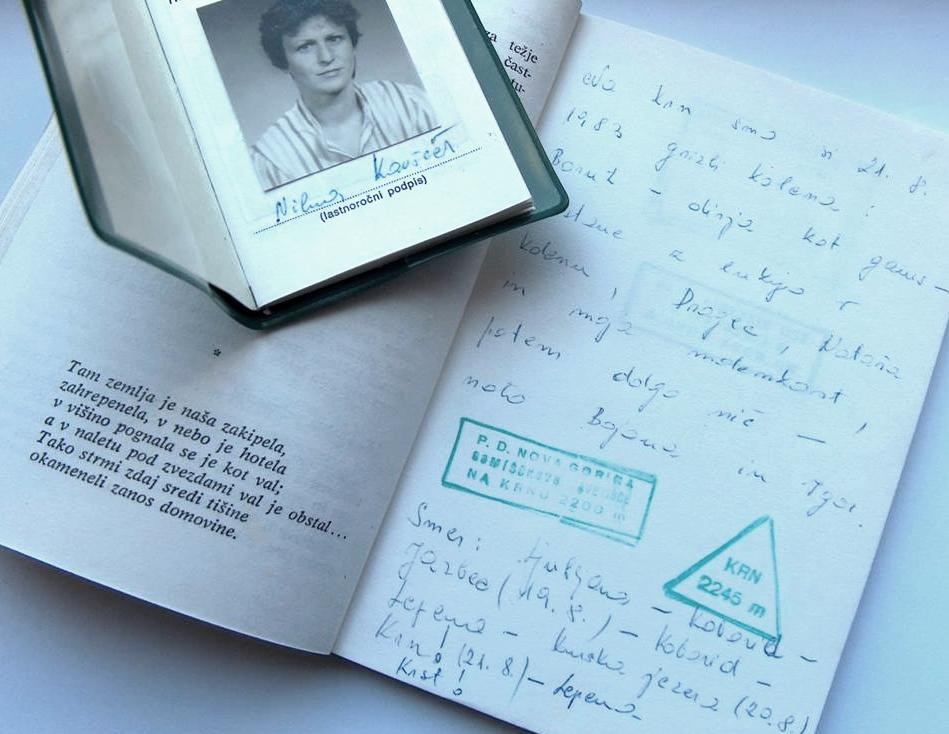 (lastnoročni podpis)
za težje
čast-
tu-
*
Tam zemlja je naša zakipela,
zahrepenela, v nebo je hotela
v višino pognala se je kot val;
a v naletu pod zvezdami val je obstal...
Tako strmi zdaj sredi tišine
okameneli zanos domovine.
Na Krn smo si 21. 8.
1983 grizli kolena!
Borut - divja kot gams -
z lukijo v
kolenu! Dragec, Nataša
in moja malenkost,
potem dolgo nič -
nato Bojana in Igor.
P. D. NOVA GORICA
NA KRNU 2200 m
KRN
2245 m
Smer: Ljubljana - Kobarid -
(19. 8.) - Kobarid -
Lepena - Krnska jezera (20. 8.)
Krn! (21. 8.) - Lepena